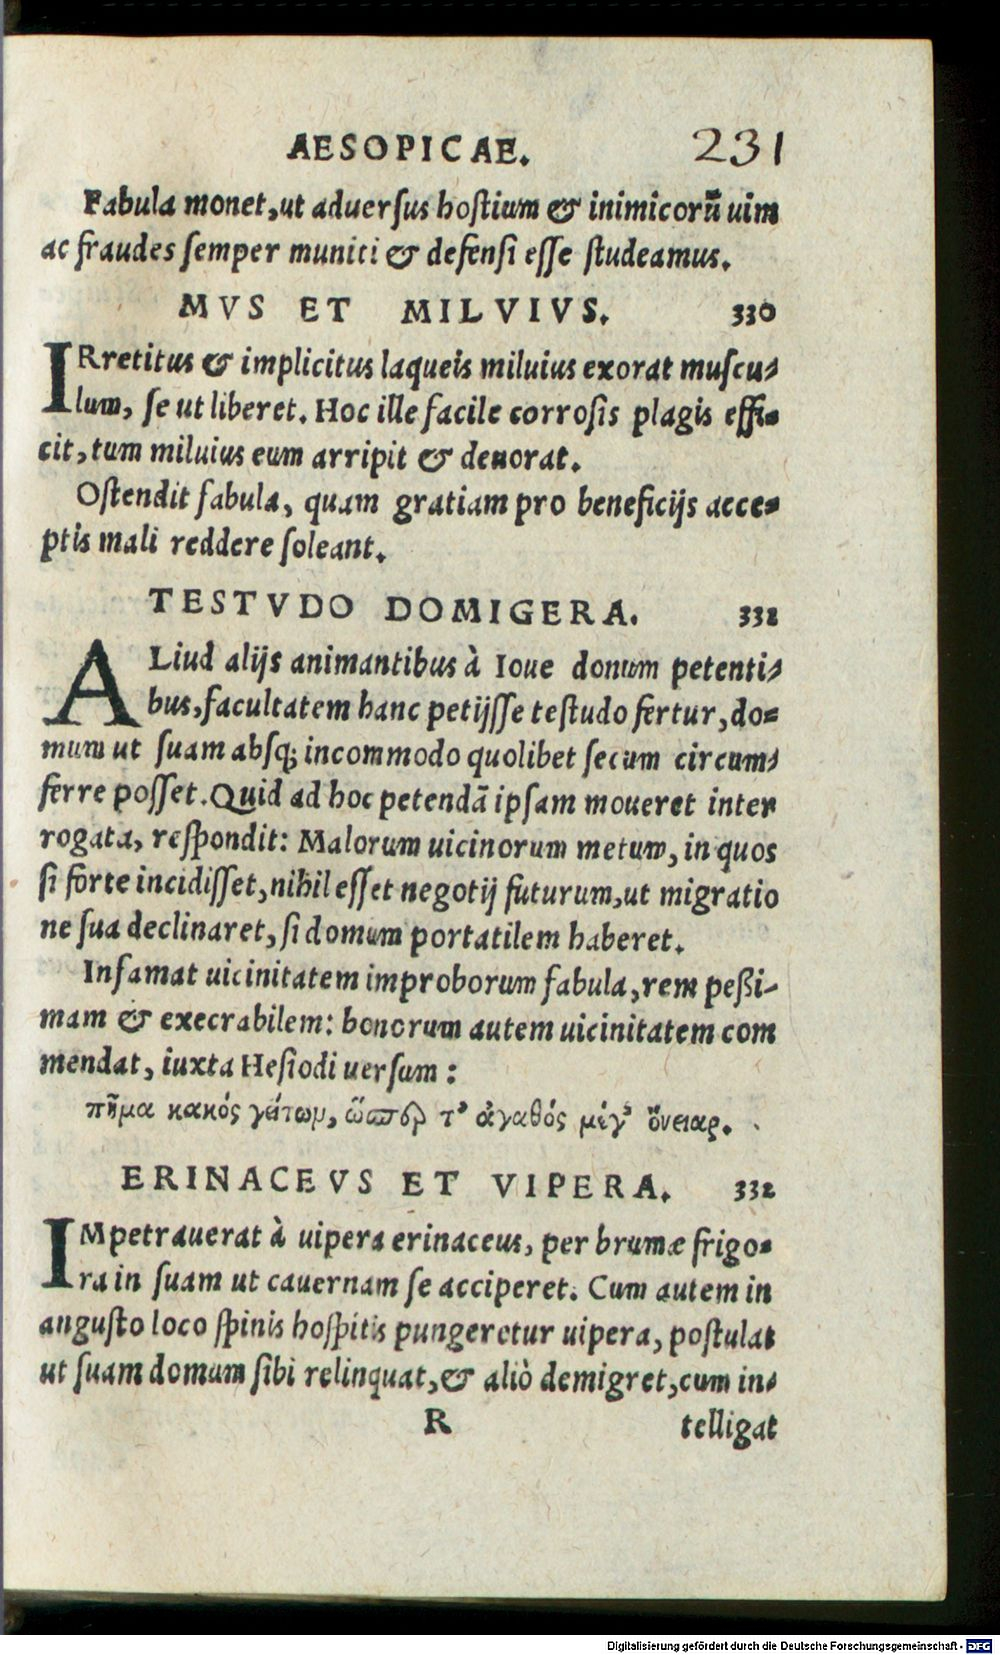 AESOPICAE. 231
Fabula monet, ut aduersus hostium & inimicorũ uim
ac fraudes semper muniti & defensi esse studeamus.
MVS ET MILVIVS. 330
IRretitus & implicitus laqueis miluius exorat muscu-
lum, se ut liberet. Hoc ille facile corrosis plagis effi-
cit, tum miluius eum arripit & deuorat.
Ostendit fabula, quam gratiam pro beneficijs acce-
ptis mali reddere soleant.
TESTVDO DOMIGERA. 331
ALiud alijs animantibus à Ioue donum petenti-
bus, facultatem hanc petijsse testudo fertur, do-
mum ut suam absq; incommodo quolibet secum circum-
ferre posset. Quid ad hoc petendã ipsam moueret inter
rogata, respondit: Malorum uicinorum metum, in quos
si forte incidisset, nihil esset negotij futurum, ut migratio
ne sua declinaret, si domum portatilem haberet.
Infamat uicinitatem improborum fabula, rem peßi-
mam & execrabilem: bonorum autem uicinitatem com
mendat, iuxta Hesiodi uersum:
πῆμα κακός γείτων, ὥσπερ τ' ἀγαθός μέγ' ὄνειαρ.
ERINACEVS ET VIPERA. 332
IMpetrauerat à uipera erinaceus, per brumæ frigo-
ra in suam ut cauernam se acciperet. Cum autem in
angusto loco spinis hospitis pungeretur uipera, postulat
ut suam domum sibi relinquat, & aliò demigret, cum in-
R telligat
Digitalisierung gefördert durch die Deutsche Forschungsgemeinschaft - DFG